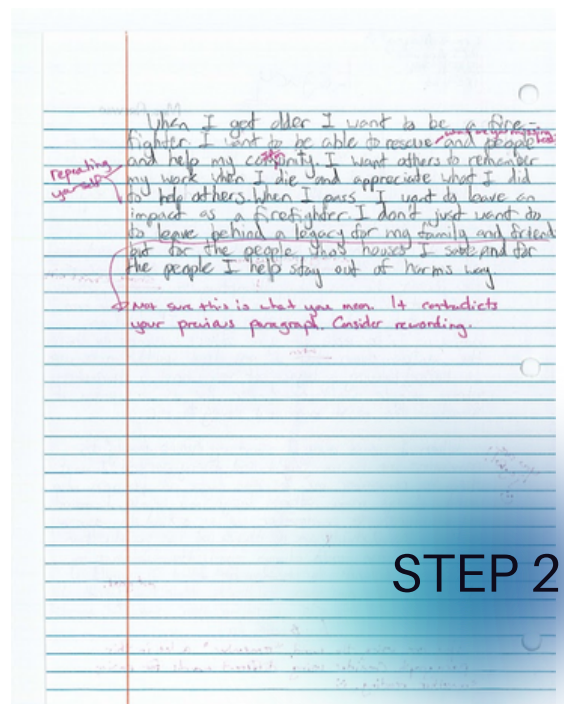 When I get older I want to be a fire-
fighter. I want to be able to rescue and people
and help my
repeating
yourself
I want others to remember
my work when I die and appreciate what I did
to help others. When I pass I want to leave an
impact as a firefighter. I don't just want to
to leave behind a legacy for my family and friend
but for the people thats houses I save and for
the people I help stay out of harms way
Not sure this is what you mean. It contradicts
your previous paragraph. Consider rewording.
STEP 2